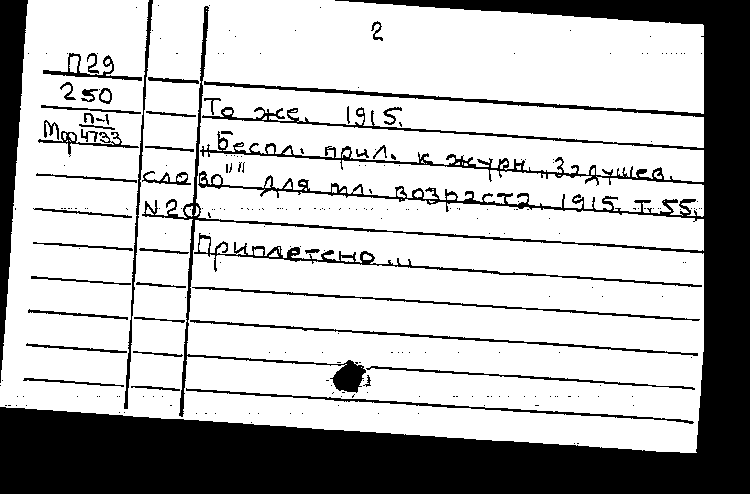 2
П29
250
То же. 1915.
П-1
Мф 4733
„Беспл. прил. к журн. „Задушев.
слово"" для мл. возраста. 1915. Т. 55,
N20.
Приплетено...